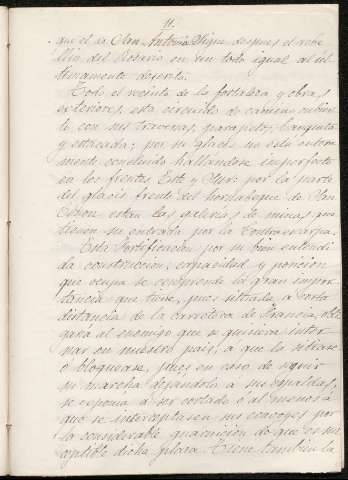 11.
que el de San Antonio sigue despues el rebe
llin del Rosario en un todo igual al úl
timamente descrito.
Todo el recinto de la fortaleza y obras
exteriores, esta circuido de camino cubier
to con sus traversas, parapetos, banqueta
y estacada; pero su glacis no está entera
mente concluido hallandose imperfecto
en los frentes Este y Sur. Por la parte
del glacis frente del hornabeque de San
Zenon estan las galerias de minas que
tienen su entrada por la Contraescarpa.
Esta Fortificacion por su bien entendi
da construccion, capacidad y posicion
que ocupa se comprende la gran impor
tancia que tiene, pues situada á corta
distancia de la carretera de Francia, obli
gará al enemigo que se quisiera inter
nar en nuestro pais, á que la sitiase
ó bloquease, pues en caso de seguir
su marcha dejandola á sus espaldas,
se esponia á ser cortado ó al menos á
que se interceptasen sus convoyes por
la considerable guarnicion de que es sus
ceptible dicha plaza. Tiene tambien la